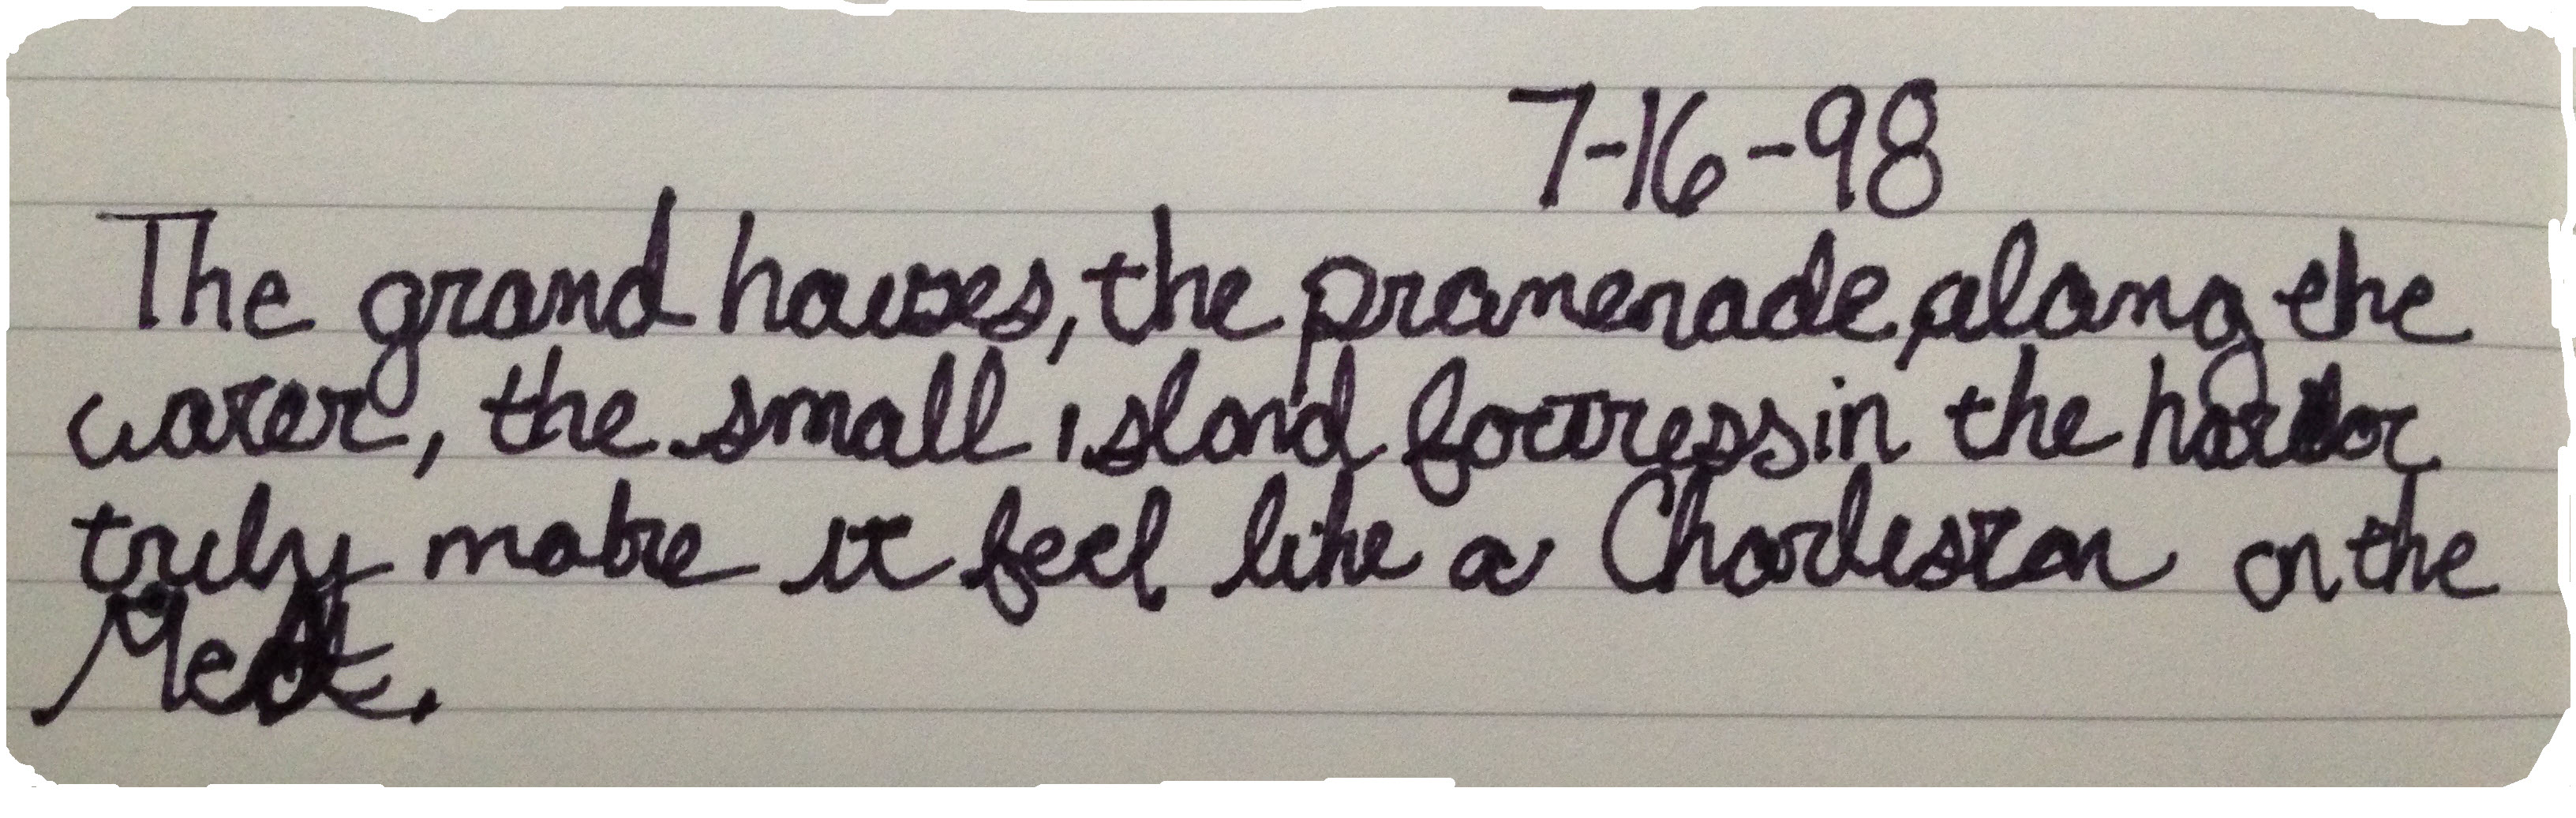 7-16-98
The grand houses, the promenade along the
water, the small island fortress in the harbor
truly make it feel like a Charleston on the
Med.